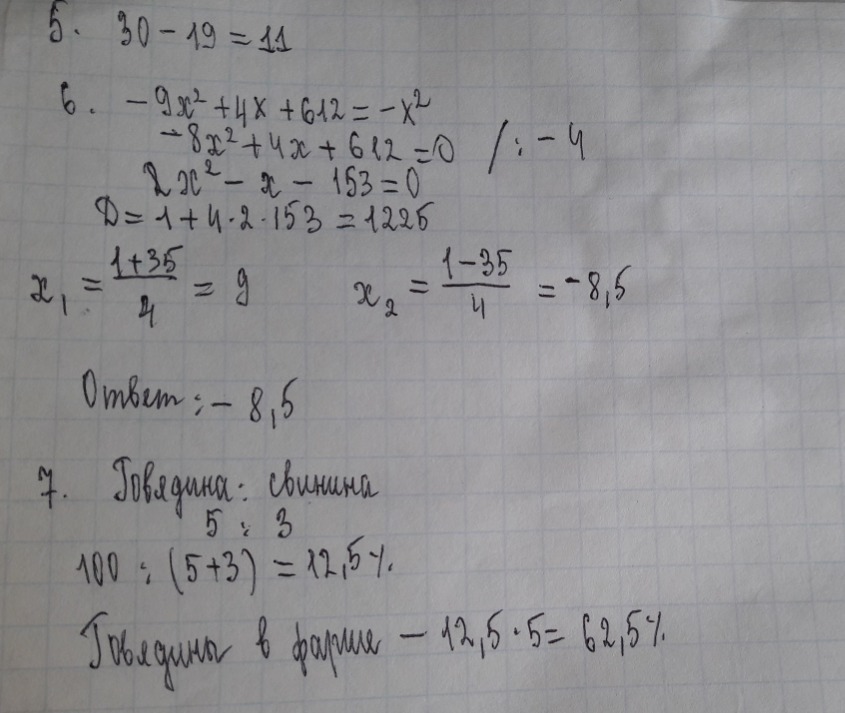 5. 30 - 19 = 11
6. -9x² + 4x + 612 = -x²
-8x² + 4x + 612 = 0 / : -4
2x² - x - 153 = 0
D = 1 + 4 · 2 · 153 = 1225
x₁ = (1+35)/4 = 9 x₂ = (1-35)/4 = -8,5
Ответ: - 8,5
7. Говядина : свинина
5 : 3
100 : (5+3) = 12,5%
Говядины в фарше - 12,5 · 5 = 62,5%